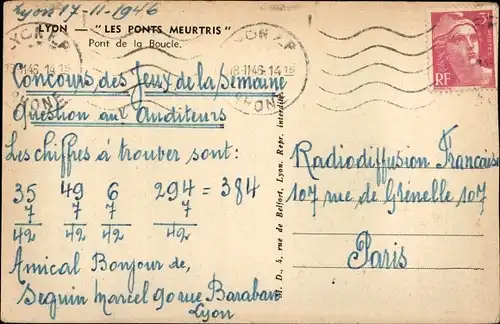 Lyon 17-11-1946
LYON — "LES PONTS MEURTRIS"
Pont de la Boucle.
18-11 46. 14 15
RHONE
18-11 46. 14 15
RHONE
RF
Concours des Jeux de la Semaine
Question aux Auditeurs
Les chiffres à trouver sont:
35 49 6 294 = 384
7 7 7 7
42 42 42 42
Amical Bonjour de,
Seguin Marcel 90 rue Baraban
Lyon
M. D., 4, rue de Belfort, Lyon. Repr. interdite.
Radiodiffusion Francaise
107 rue de Grenelle 107
Paris